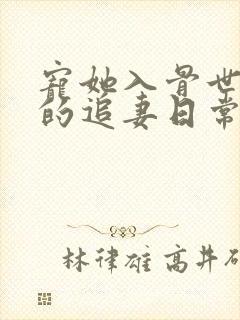 宠她入骨世
的追妻日常
林律雄高井研